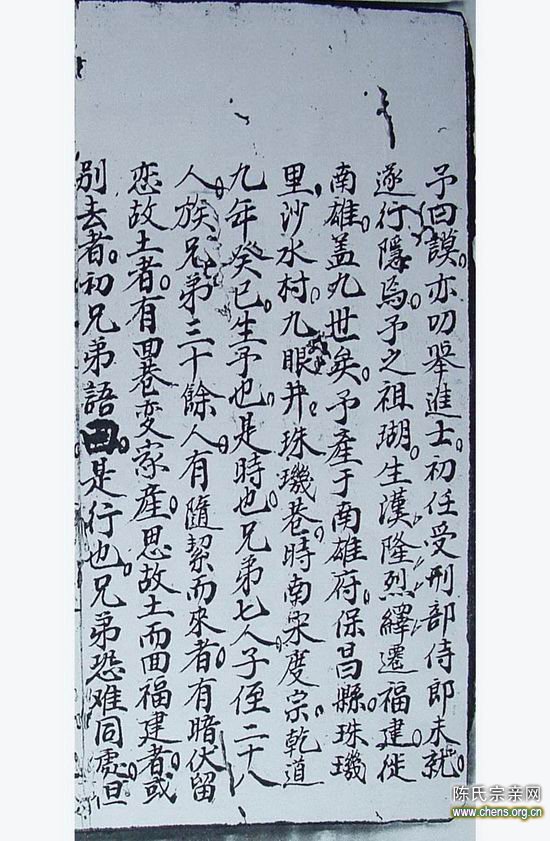 予曰謨。亦叨舉進士。初任受刑部侍郎未就。
遂行隱焉。予之祖瑚。生漢隆烈繹遷福建。徙
南雄。盖九世矣。予產于南雄府。保昌縣。珠璣
里。沙水村。九眼井。珠璣巷。時南宋度宗。乾道
九年癸巳。生予也。是時也。兄弟七人子侄二十八
人。族兄弟三十餘人。有隨絜而來者。有暗伏留
恋故土者。有回巷变家產。思故土而回福建者。或
别去者。初兄弟語曰。是行也。兄弟恐难同處。但
陈氏宗亲网
www.chens.org.cn